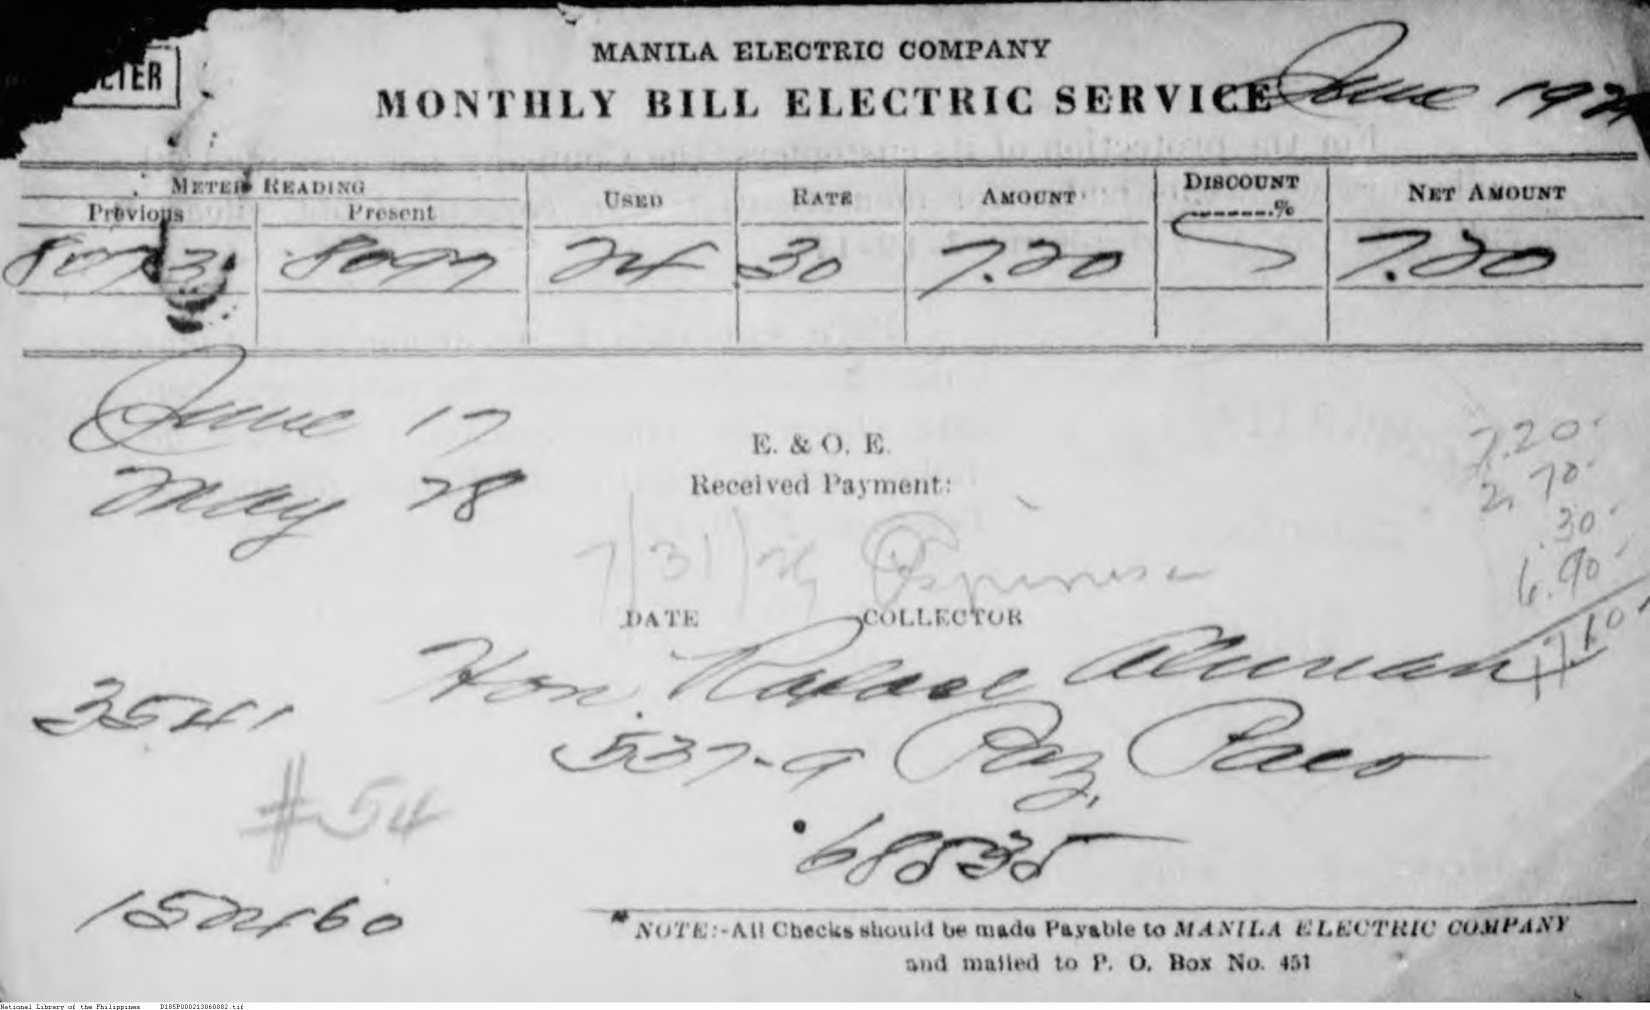 MANILA ELECTRIC COMPANY
METER
MONTHLY BILL ELECTRIC SERVICE June 192
METER READING USED RATE AMOUNT DISCOUNT NET AMOUNT
Previous Present ........%
8073 8097 24 30 7.20 7.20
June 17
May 28
E. & O. E.
Received Payment:
7.20
2.70
.30
6.90
17.10
7/31/26 Espinosa
DATE COLLECTOR
Hon. Rafael Alunan
3541
537-9 Paz, Paco
#54
68535
152460
NOTE:-All Checks should be made Payable to MANILA ELECTRIC COMPANY
and mailed to P. O. Box No. 451
National Library of the Philippines D185P000213060882.tif